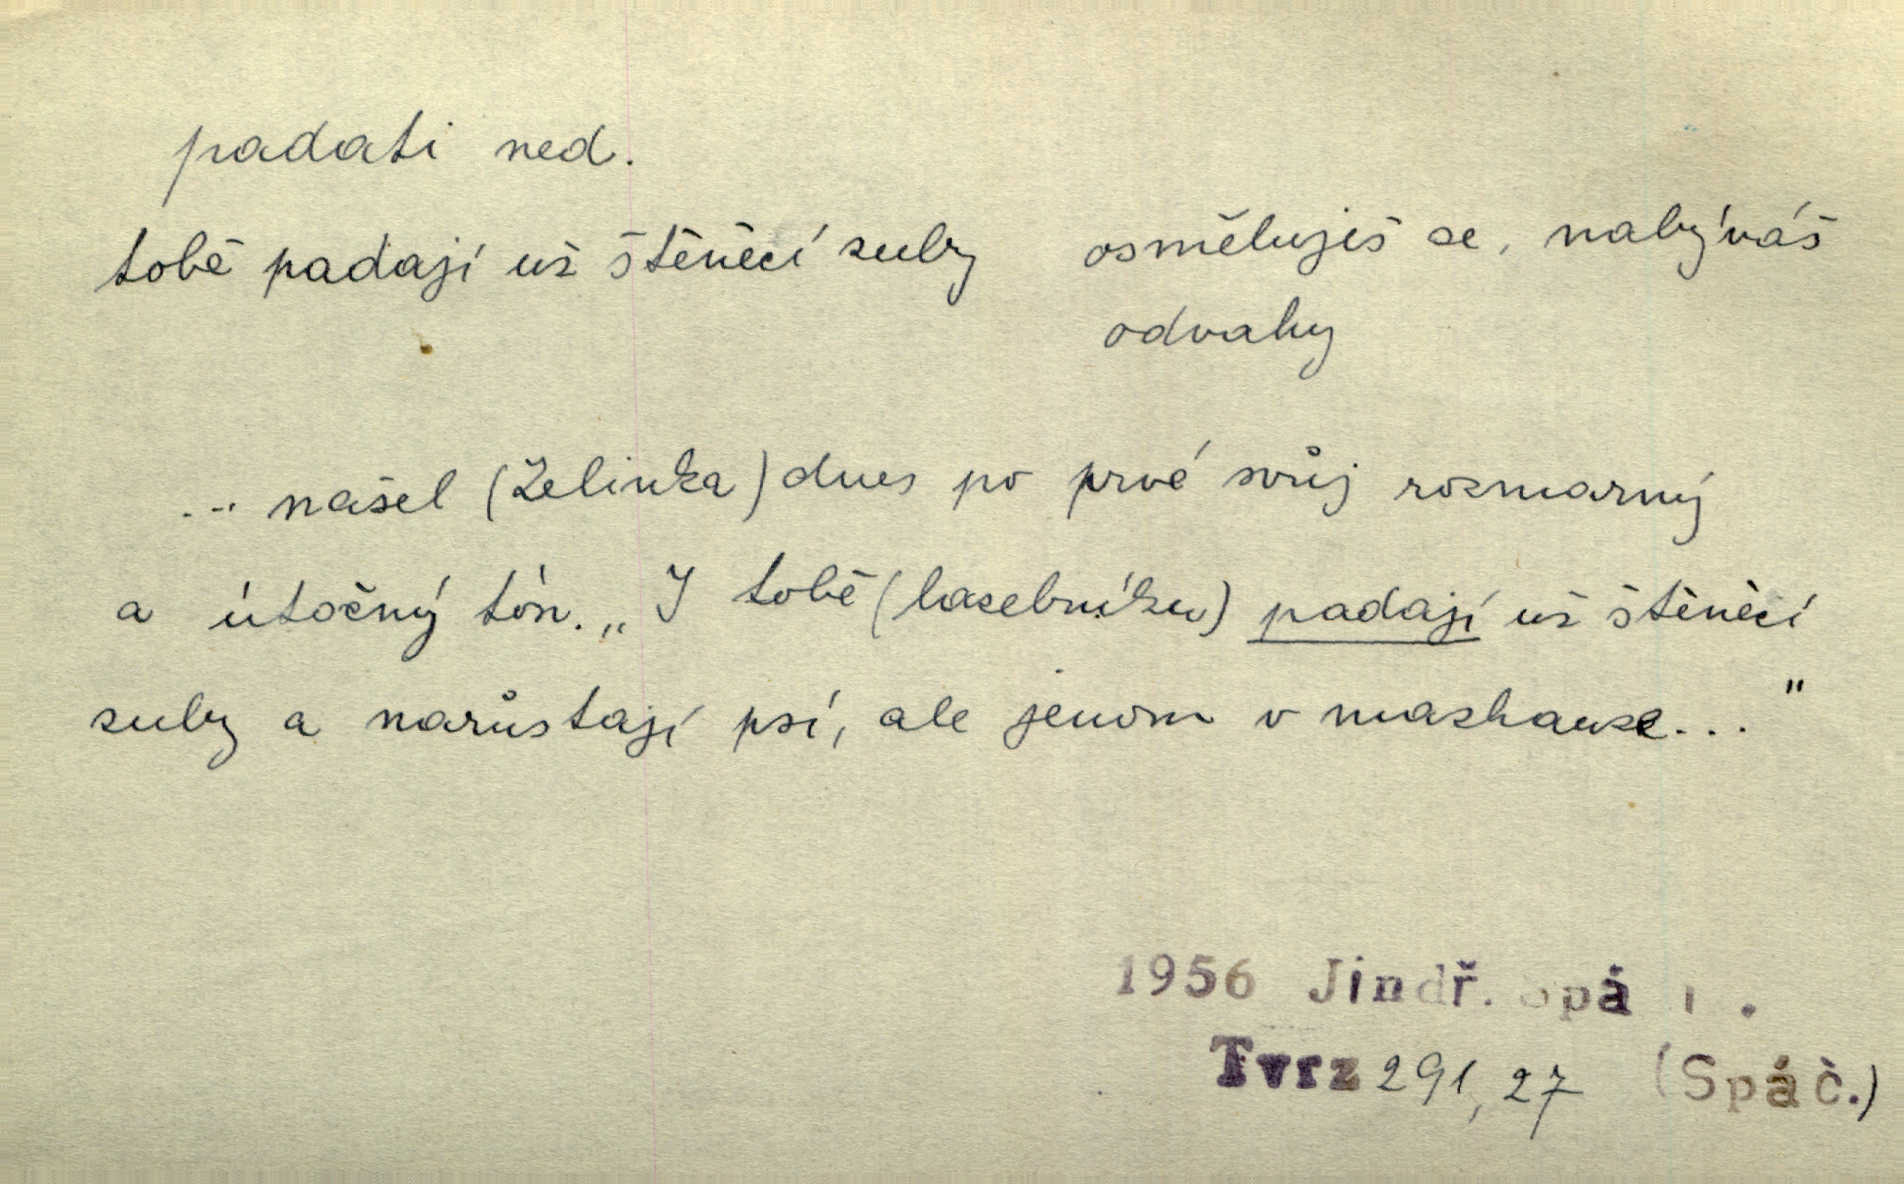 padati ned.
tobě padají už štěněcí zuby osměluješ se, nabýváš
odvahy
... našel (Zelinka) dnes po prvé svůj rozmarný
a útočný tón. „I tobě (lazebníku) padají už štěněcí
zuby a narůstají psí, ale jenom v mazhauze..."
1956 Jindř.
Tvrz 291,27 (Spáč.)